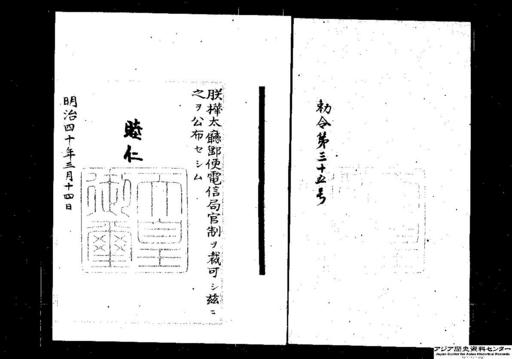 勅令第三十五号
朕樺太廳郵便電信局官制ヲ裁可シ茲ニ
之ヲ公布セシム
睦仁
天皇御璽
明治四十年三月十四日
アジア歴史資料センター
Japan Center for Asian Historical Records